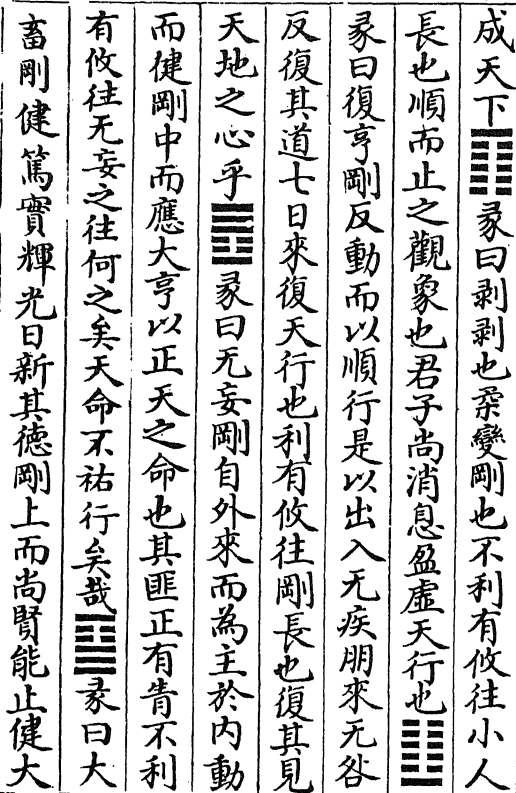 成天下䷖彖曰剥剥也柔變剛也不利有攸往小人
長也順而止之觀象也君子尚消息盈虛天行也䷗
彖曰復亨剛反動而以順行是以出入无疾朋來无咎
反復其道七日來復天行也利有攸往剛長也復其見
天地之心乎䷘彖曰无妄剛自外來而為主於內動
而健剛中而應大亨以正天之命也其匪正有眚不利
有攸往无妄之往何之矣天命不祐行矣哉䷙彖曰大
畜剛健篤實輝光日新其德剛上而尚賢能止健大